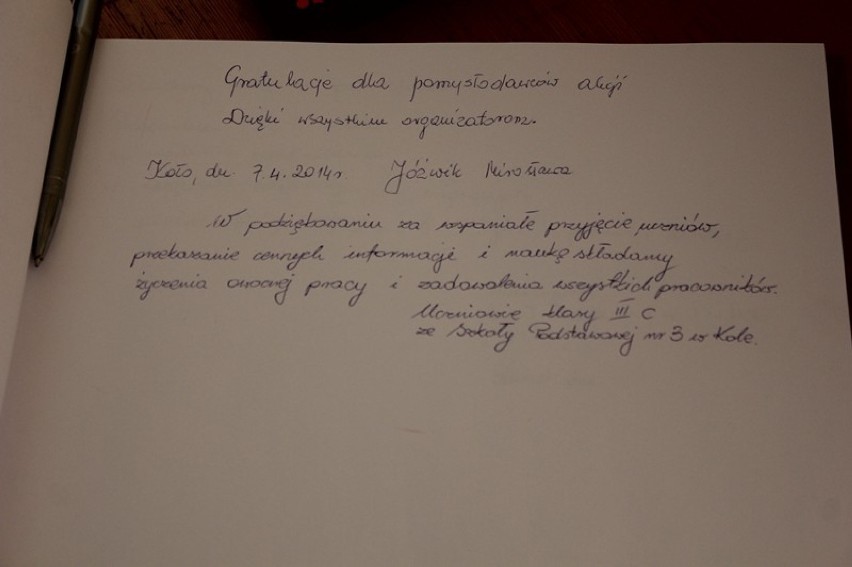 Gratulacje dla pomysłodawców akcji
Dzięki wszystkim organizatorom.
Koło, dn. 7.4.2014r. Jóźwik Mirosława
W podziękowaniu za wspaniałe przyjęcie uczniów,
przekazanie cennych informacji i naukę składamy
życzenia owocnej pracy i zadowolenia wszystkich pracowników.
Uczniowie klasy III C
ze Szkoły Podstawowej nr 3 w Kole.